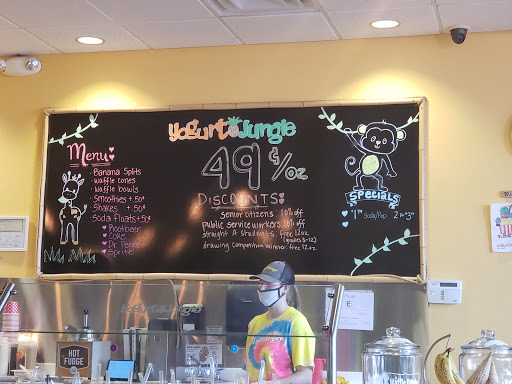 Yogurt Jungle
49 ¢/oz
DISCOUNTS:
senior citizens 10% off
public service workers 10% off
straight A students: free 12oz
(grades 3-12)
drawing competition winner free 12oz
Menu
· Banana Splits
· waffle cones
· waffle bowls
· Smoothies + 50¢
· Shakes + 50¢
Soda floats + 50¢
Rootbeer
Coke
Dr. Pepper
Sprite
Specials
Soda/Pop
HOT
FUDGE